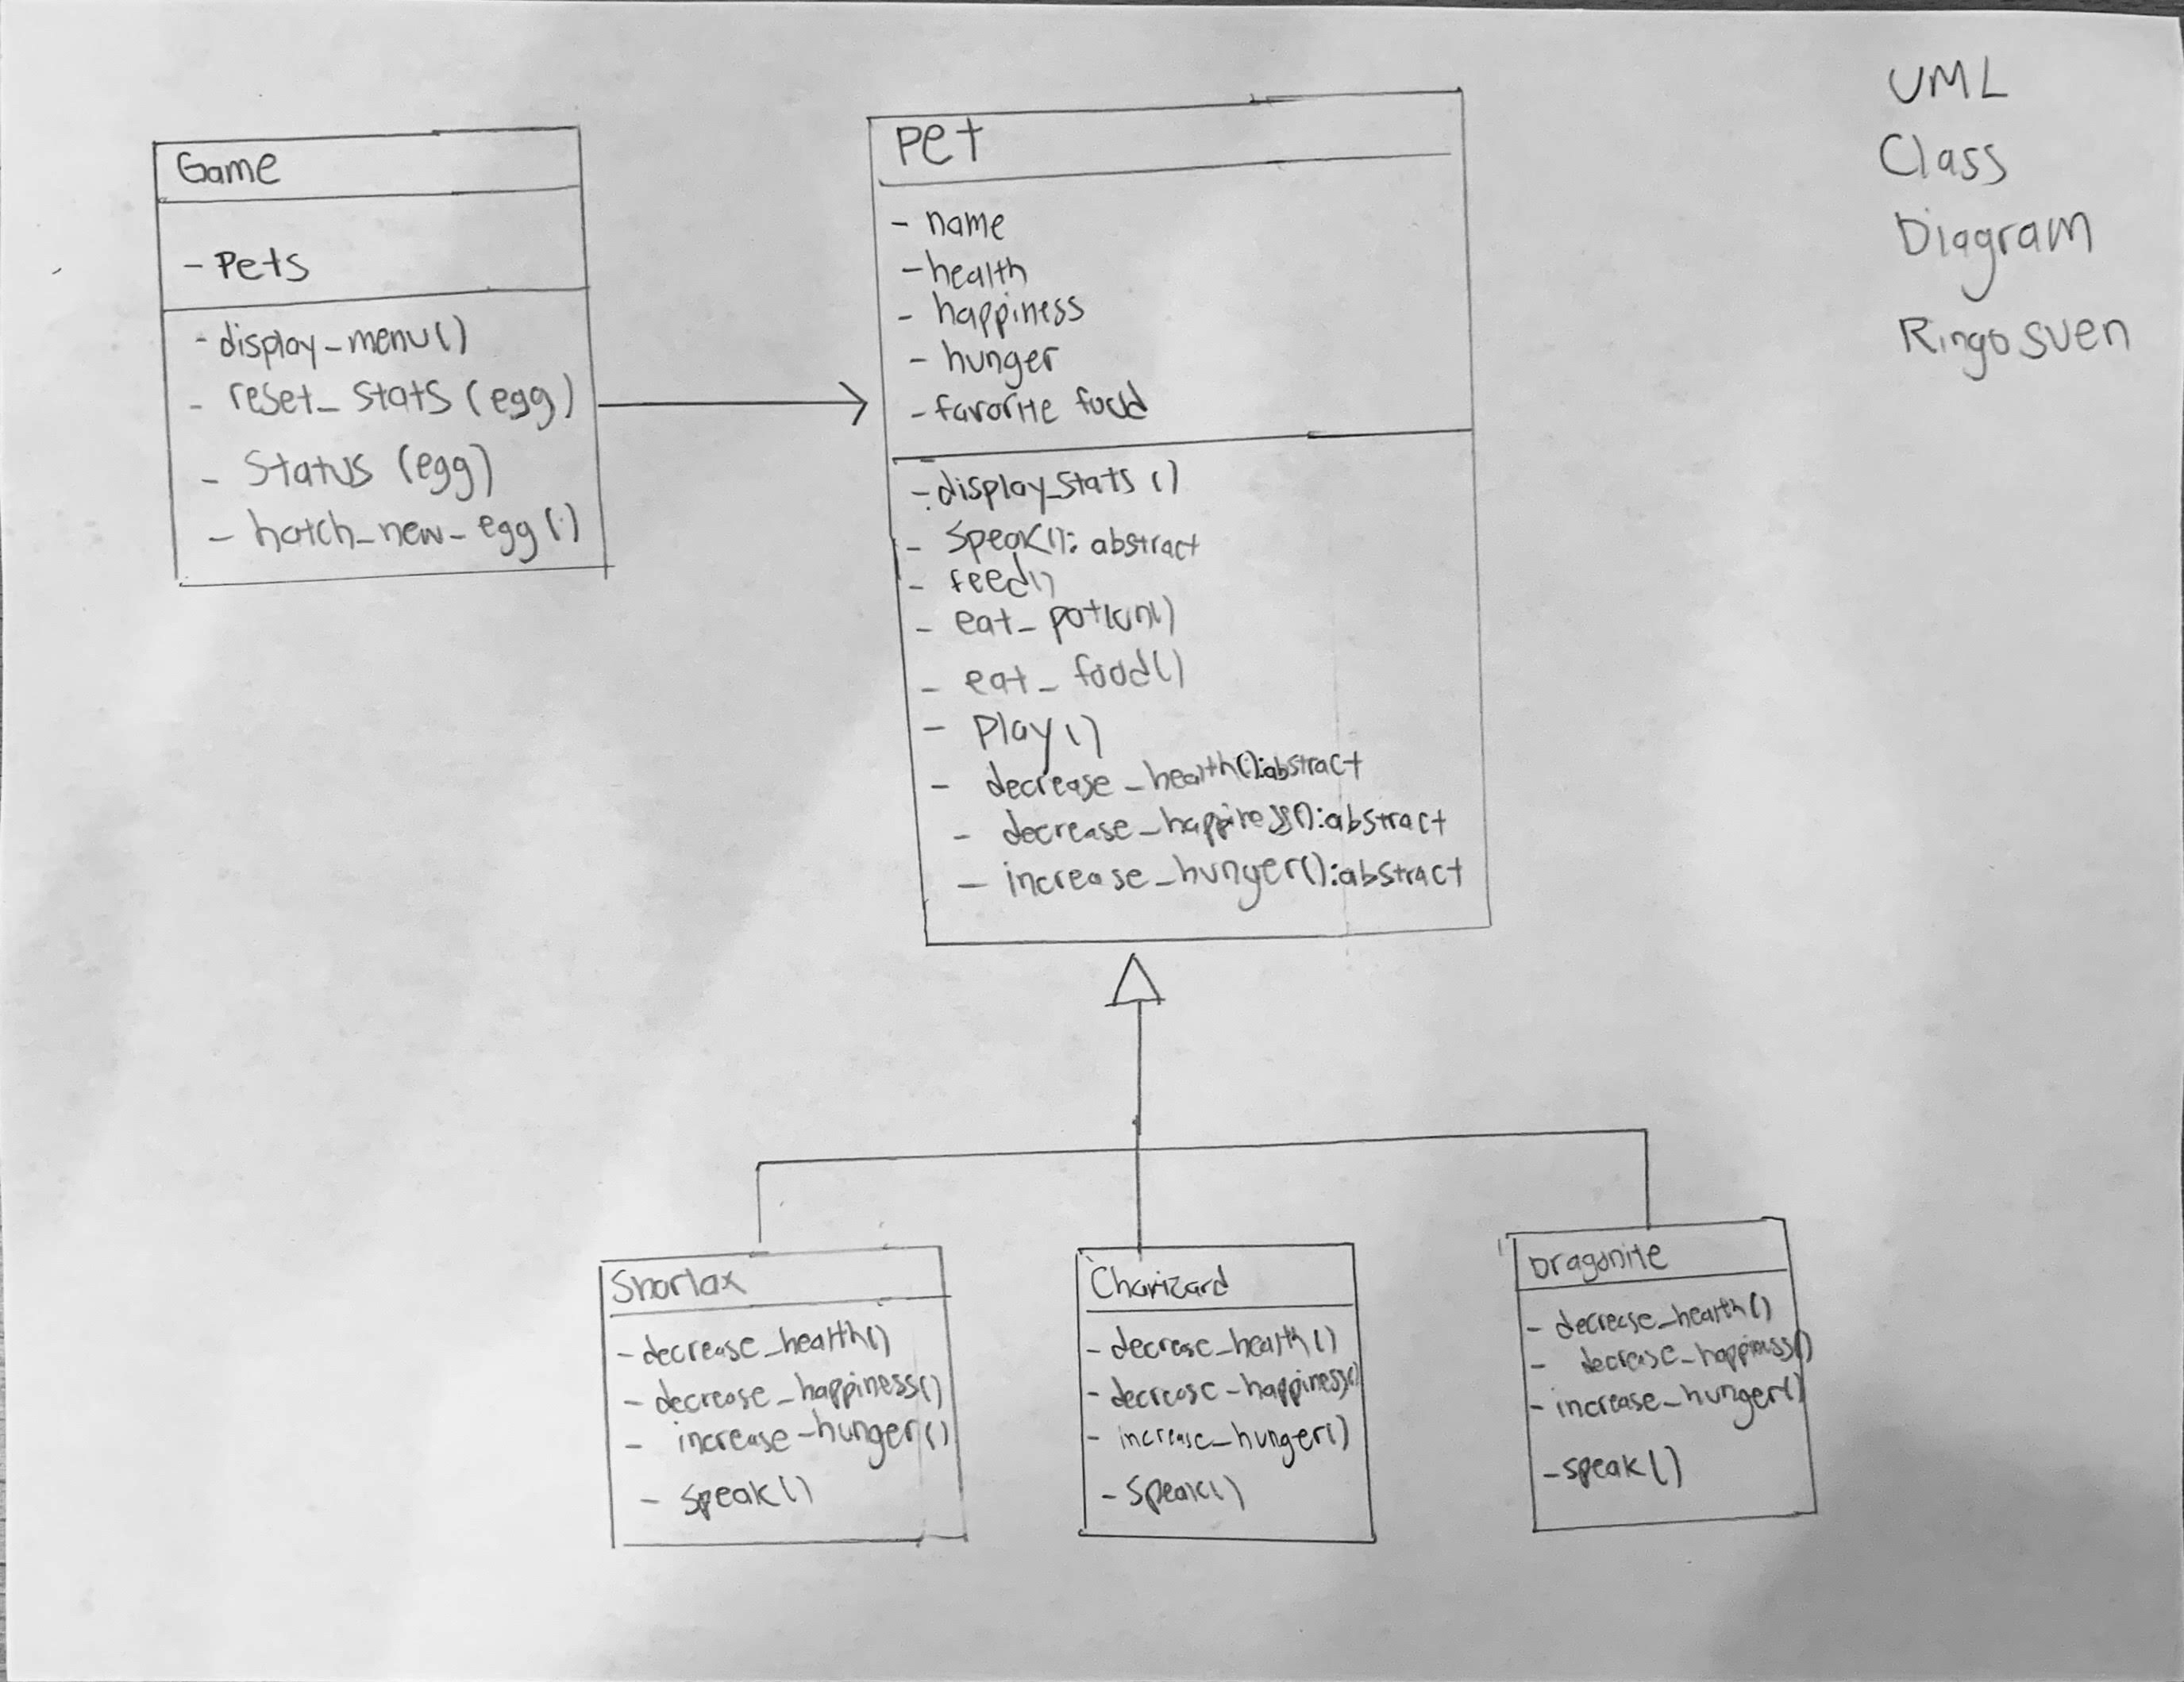 UML
Class
Diagram
Ringo Sven
Game
- Pets
- display_menu()
- reset_stats(egg)
- Status(egg)
- hatch_new_egg()
Pet
- name
- health
- happiness
- hunger
- favorite food
- display_stats()
- Speak(): abstract
- feed()
- eat_potion()
- eat_food()
- Play()
- decrease_health():abstract
- decrease_happiness():abstract
- increase_hunger():abstract
Snorlax
- decrease_health()
- decrease_happiness()
- increase_hunger()
- Speak()
Charizard
- decrease_health()
- decrease_happiness()
- increase_hunger()
- Speak()
Dragonite
- decrease_health()
- decrease_happiness()
- increase_hunger()
- speak()